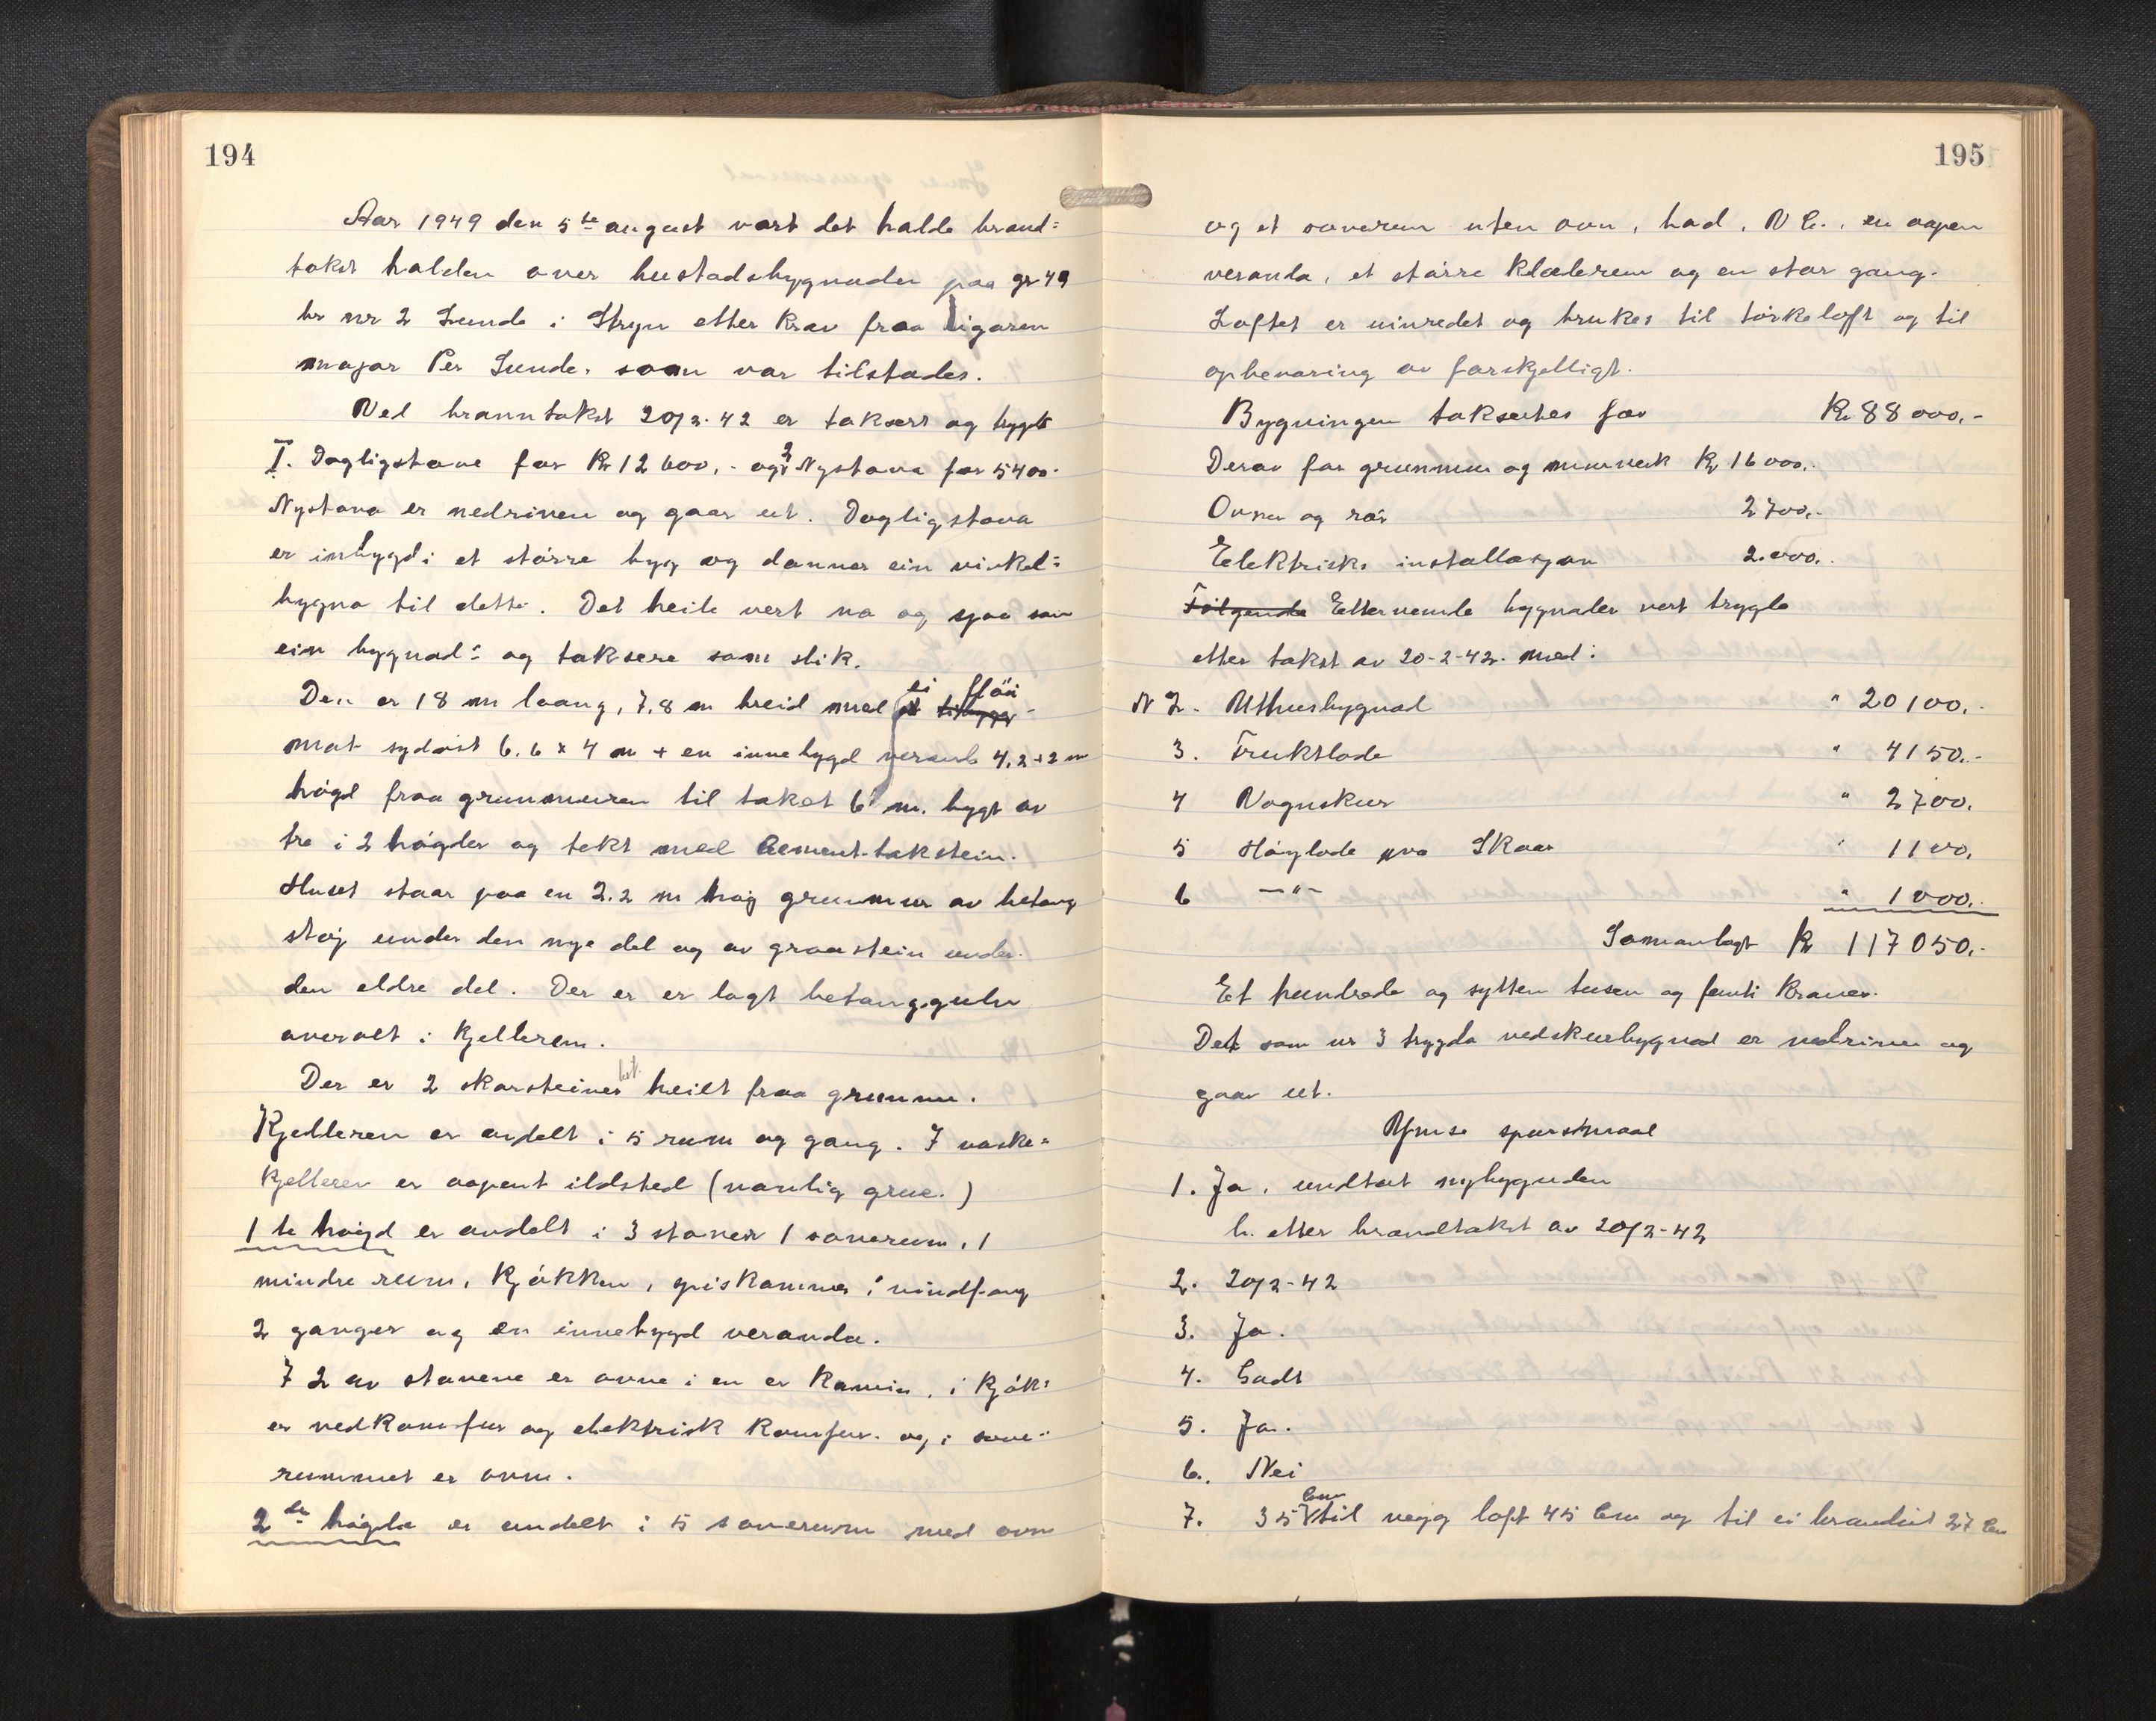 194
Aar 1949 den 5te august vart det halde brand=
takst halden over hustadsbygnaden paa gr 49
br nr 2 Lunde i Stryn etter krav fraa eigaren
major Per Lunde, som var tilstades.
Ved branntakst 20/2-42 er taksert og trygda
I. Dagligstove for Kr 12 600,- og 2 Nystova for 5400.-
Nystova er nedriven og gaar ut. Dagligstova
er inbygd i et större bygg og danner ein vinkel=
bygna til dette. Det heile vert no og sjaa som
ein bygnad og taksere som slik.
Den er 18 m laang, 7,8 m breid med ei flöi
mot sydöst 6.6 x 4 m + en innebygd veranda 4,2 x 2 m
högd fraa grunmuren til taket 6 m. bygt av
tre i 2 högder og tekt med Cement-takstein.
Huset staar paa en 2.2 m höj grunmur av betong
stöj under den nye del og av graastein under
den eldre del. Der er er lagt betonggulv
overalt i kjellerem.
Der er 2 skorsteiner heilt fraa grunnen.
Kjelleren er avdelt i 5 rum og gang. I vaske=
kjelleren er aapent ildsted (vanlig grue.)
1 te höigd er avdelt i 3 stover 1 soverum, 1
mindre rum, kjökken, spiskammer, vindfang
2 ganger og en innebygd veranda.
I 2 av stovene er ovne i en er kamin, i kjök=
er vedkomfur og elektrisk komfur. og i sove=
rummet er ovn.
2de högde er avdelt i 5 soverum med ovn
195
og et soverum uten ovn, bad, W C., en aapen
veranda, et större klælerum og en stor gang.
Loftet er uinredet og brukes til törkeloft og til
opbevaring av forskjelligt.
Bygningen takseres for Kr 88 000,-
Derav for grunmur og murverk Kr 16 000,-
Ovner og rör 2700,-
Elektriske installasjon 2.000,-
Fölgende Etternemde bygnader vert trygde
etter takst av 20-2-42. med:
N 2. Uthusbygnad " 20 100.-
3. Fruktlade " 4150.-
4 Vognskur " 2700.
5 Höylade paa Skaar " 1100.
6 —"— " 1000.-
Samanlagt Kr 117 050.-
Et hundrede og sytten tusen og femti Kroner.
Det som nr 3 trygda vedskurbygnad er nedriven og
gaar ut.
Ymse spursmaal
1. Ja, undtat nybygnden
b. etter brandtakst av 20/2-42
2. 20/2-42
3. Ja.
4. Godt
5. Ja.
6. Nei
7. 35 Cm til vegg loft 45 Cm og til ei brandmur 27 Cm